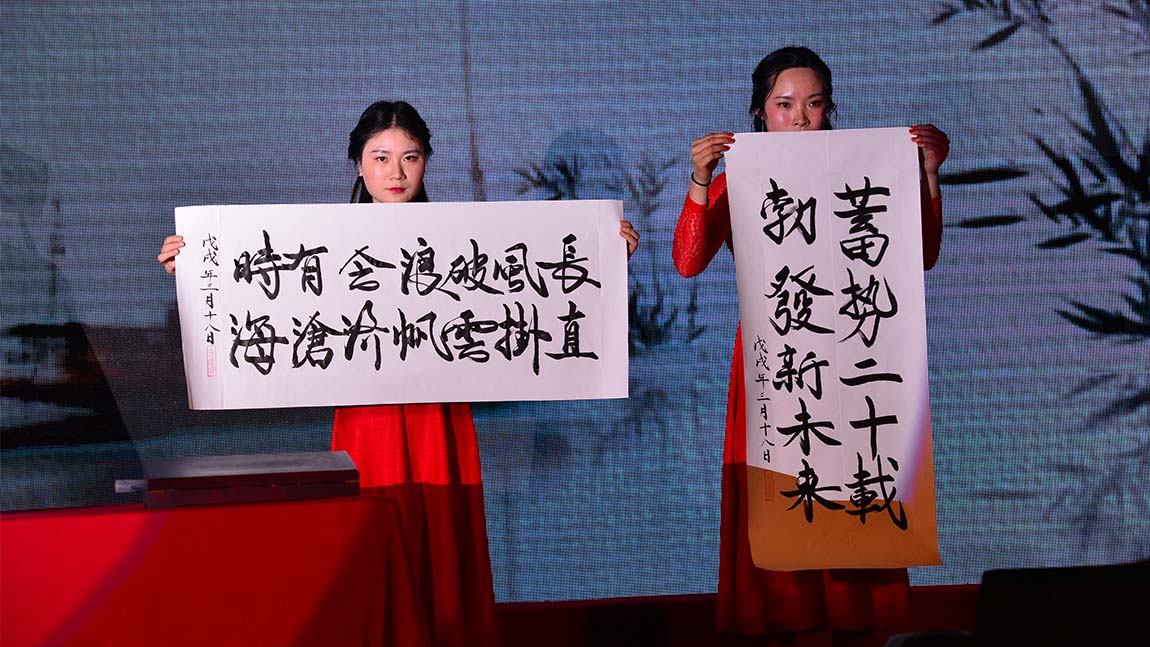 長風破浪会有時
直掛雲帆济滄海
戊戌年三月十八日
蓄势二十載
勃發新未来
戊戌年三月十八日